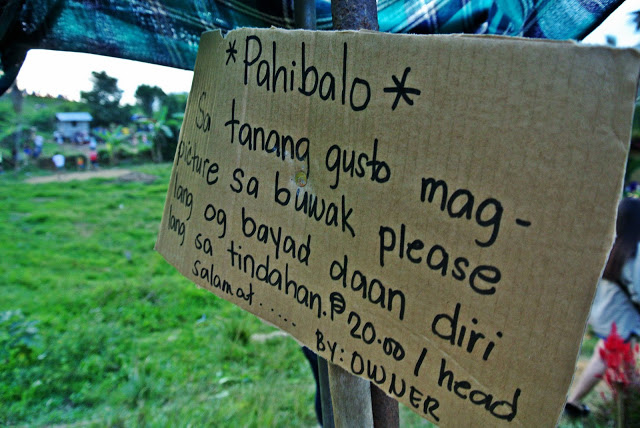 *Pahibalo*
Sa tanang gusto mag-
picture sa buwak please
lang og bayad daan diri
lang sa tindahan. ₱20.00 / head
salamat.....
BY: OWNER